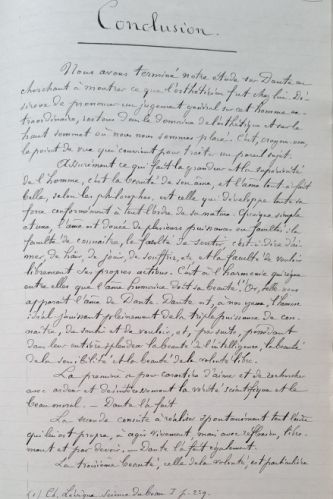 Conclusion.
Nous avons terminé notre étude sur Dante en
cherchant à montrer ce que l'esthéticien fut chez lui. Dé-
sireux de prononcer un jugement général sur cet homme ex-
traordinaire, restons dans le domaine de l'esthétique et sur le
haut sommet où nous nous sommes placé. C'est, croyons-nous,
le point de vue qui convient pour traiter un pareil sujet.
Assurément ce qui fait la grandeur et la supériorité
de l'homme, c'est la beauté de son âme, et l'âme tout à fait
belle, selon les philosophes, est celle qui développe toute sa
force conformément à tout l'ordre de sa nature. Quoique simple
et une, l'âme est douée de plusieurs puissances ou facultés: la
faculté de connaître, la faculté de sentir, c'est-à-dire d'ai-
mer, de haïr, de jouir, de souffrir, etc, et la faculté de vouloir
librement ses propres actions. C'est à l'harmonie qui règne
entre elles que l'âme humaine doit sa beauté. Or, telle nous
apparaît l'âme de Dante. Dante est, à nos yeux, l'homme
idéal jouissant pleinement de la triple puissance de con-
naître, de sentir et de vouloir, et, par suite, possédant
dans leur entière splendeur la beauté de l'intelligence, la beauté
de la sensibilité et la beauté de la volonté libre.
La première a pour caractère d'aimer et de rechercher
avec ardeur et désintéressement la vérité scientifique et le
beau moral. — Dante l'a fait.
La seconde consiste à réaliser spontanément tout l'ordre
qui lui est propre, à agir vivement, mais avec réflexion, libre-
ment et par devoir. — Dante l'a fait également.
La troisième beauté, celle de la volonté, est particulière
(1) Ch. Lévêque, Science du beau I p. 229.